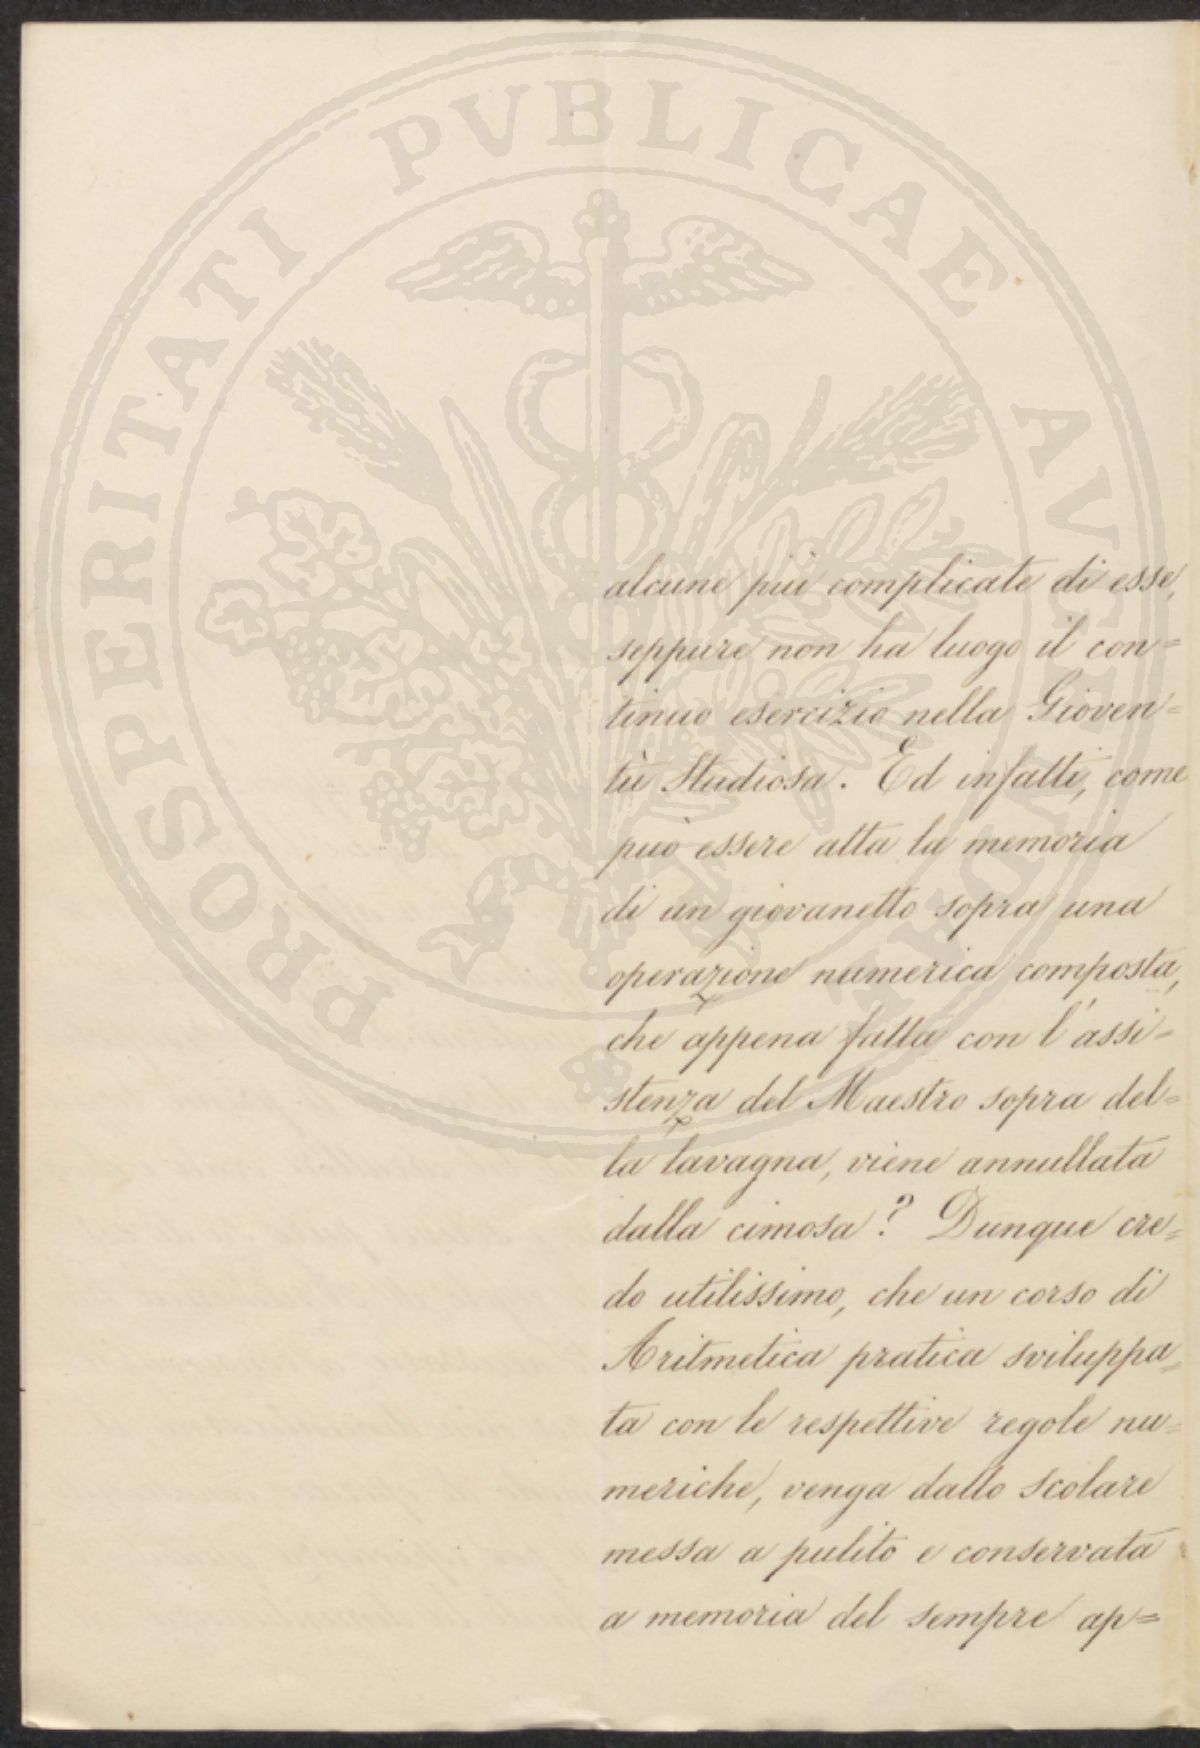 PROSPERITATI PVBLICAE AVGENDAE
alcune più complicate di esse,
seppure non ha luogo il con=
tinuo esercizio nella Gioven=
tù Studiosa. Ed infatti, come
può essere atta la memoria
di un giovanetto sopra una
operazione numerica composta,
che appena fatta con l'assi=
stenza del Maestro sopra del=
la lavagna, viene annullata
dalla cimosa? Dunque cre=
do utilissimo, che un corso di
Aritmetica pratica sviluppa=
ta con le respettive regole nu=
meriche, venga dallo scolare
messa a pulito e conservata
a memoria del sempre ap=